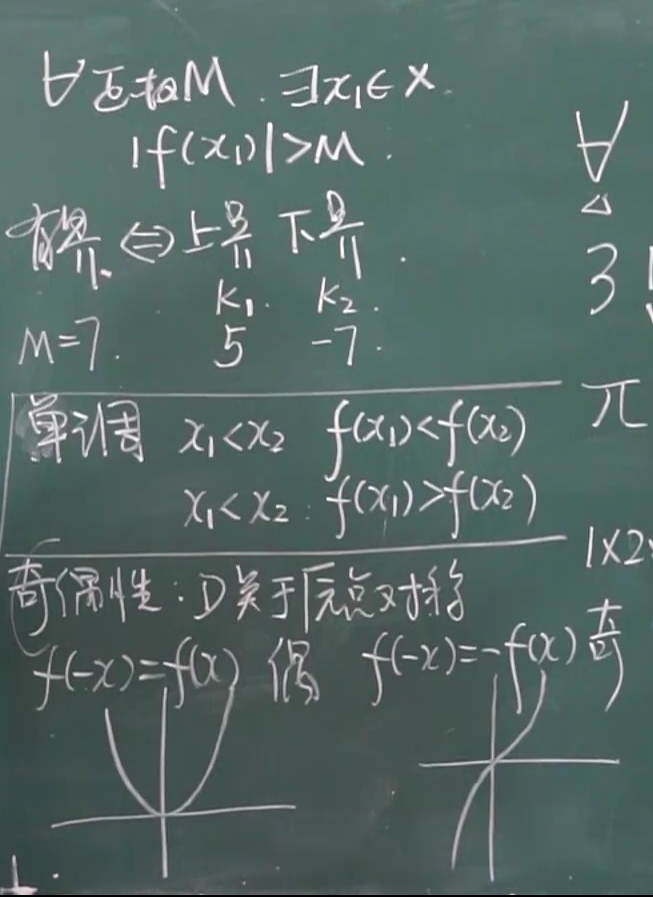 ∀正数M. ∃x₁∈X
|f(x₁)|>M.
有界⇔上界 下界.
K₁. K₂.
M=7. 5 -7.
单调 x₁<x₂ f(x₁)<f(x₂)
x₁<x₂: f(x₁)>f(x₂)
奇偶性:D关于原点对称
f(-x)=f(x) 偶 f(-x)=-f(x) 奇
∀
∃
π
1×2